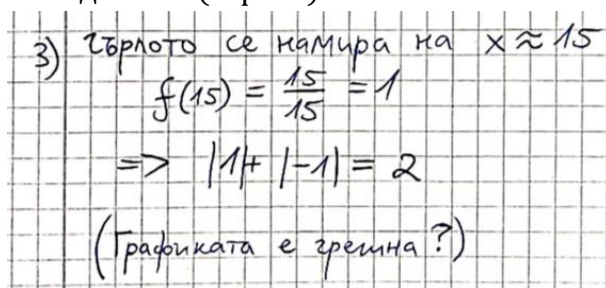 3) гърлото се намира на x ≈ 15
f(15) = 15/15 = 1
=> |1|+ |-1| = 2
(Графиката е грешна?)